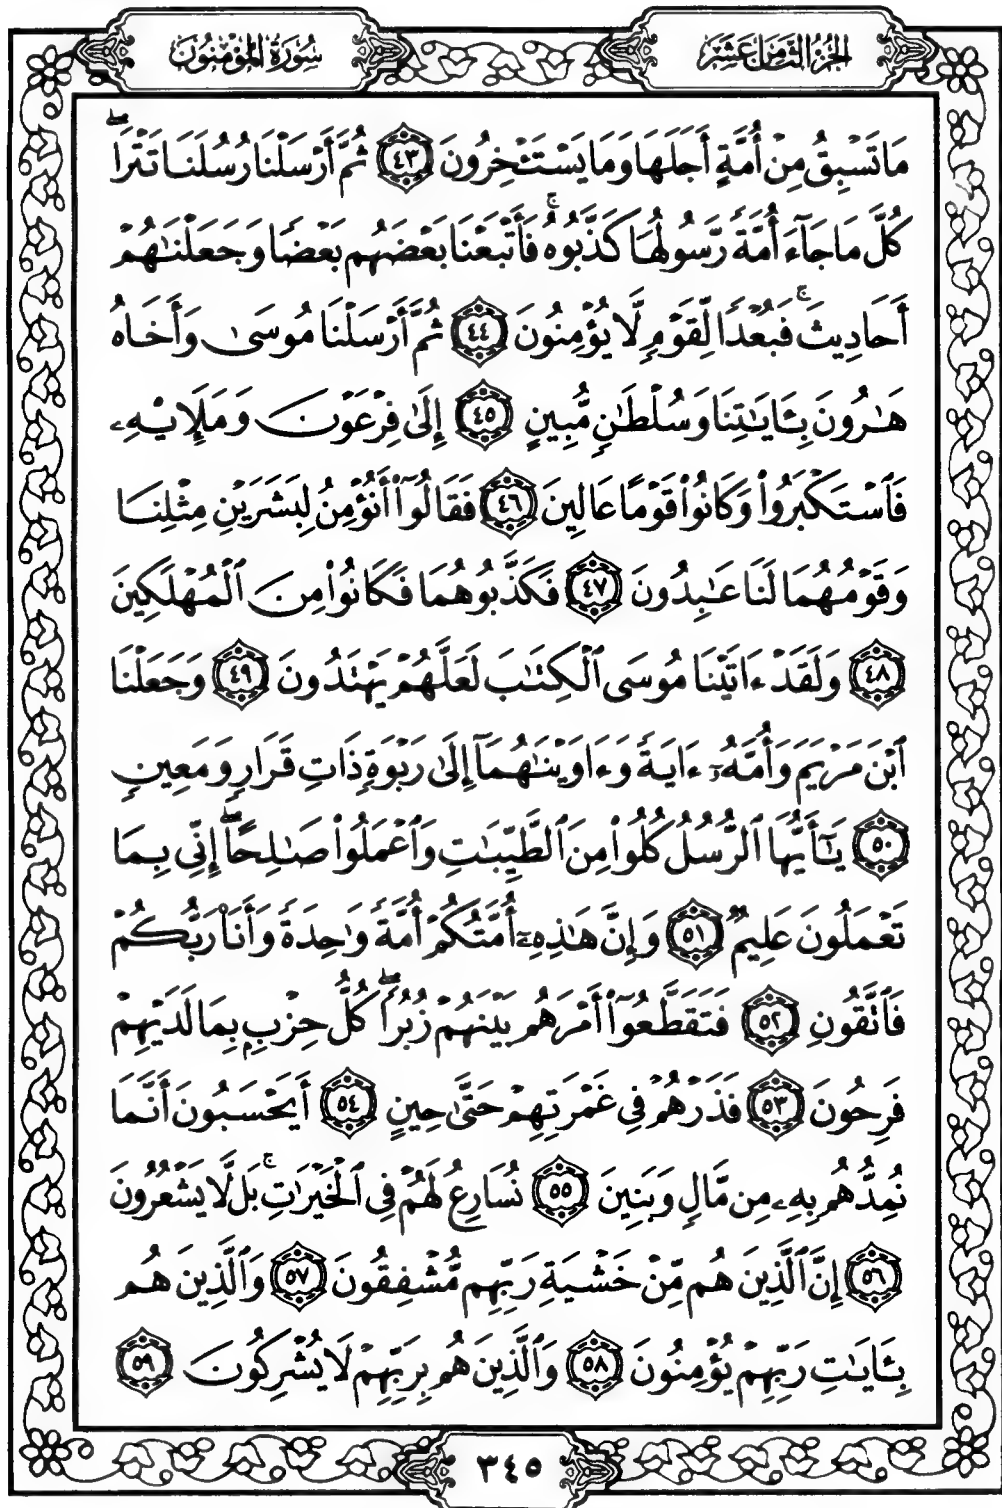 الجزء الثامن عشر
سورة المؤمنون
مَا تَسْبِقُ مِنْ أُمَّةٍ أَجَلَهَا وَمَا يَسْتَـْٔخِرُونَ ٤٣ ثُمَّ أَرْسَلْنَا رُسُلَنَا تَتْرَا ۖ
كُلَّ مَا جَآءَ أُمَّةً رَّسُولُهَا كَذَّبُوهُ ۚ فَأَتْبَعْنَا بَعْضَهُم بَعْضًا وَجَعَلْنَـٰهُمْ
أَحَادِيثَ ۚ فَبُعْدًا لِّقَوْمٍ لَّا يُؤْمِنُونَ ٤٤ ثُمَّ أَرْسَلْنَا مُوسَىٰ وَأَخَاهُ
هَـٰرُونَ بِـَٔايَـٰتِنَا وَسُلْطَـٰنٍ مُّبِينٍ ٤٥ إِلَىٰ فِرْعَوْنَ وَمَلَإِي۟هِۦ
فَٱسْتَكْبَرُوا۟ وَكَانُوا۟ قَوْمًا عَالِينَ ٤٦ فَقَالُوٓا۟ أَنُؤْمِنُ لِبَشَرَيْنِ مِثْلِنَا
وَقَوْمُهُمَا لَنَا عَـٰبِدُونَ ٤٧ فَكَذَّبُوهُمَا فَكَانُوا۟ مِنَ ٱلْمُهْلَكِينَ
٤٨ وَلَقَدْ ءَاتَيْنَا مُوسَى ٱلْكِتَـٰبَ لَعَلَّهُمْ يَهْتَدُونَ ٤٩ وَجَعَلْنَا
ٱبْنَ مَرْيَمَ وَأُمَّهُۥٓ ءَايَةً وَءَاوَيْنَـٰهُمَآ إِلَىٰ رَبْوَةٍ ذَاتِ قَرَارٍ وَمَعِينٍ
٥٠ يَـٰٓأَيُّهَا ٱلرُّسُلُ كُلُوا۟ مِنَ ٱلطَّيِّبَـٰتِ وَٱعْمَلُوا۟ صَـٰلِحًا ۖ إِنِّى بِمَا
تَعْمَلُونَ عَلِيمٌ ٥١ وَإِنَّ هَـٰذِهِۦٓ أُمَّتُكُمْ أُمَّةً وَٰحِدَةً وَأَنَا۠ رَبُّكُمْ
فَٱتَّقُونِ ٥٢ فَتَقَطَّعُوٓا۟ أَمْرَهُم بَيْنَهُمْ زُبُرًا ۖ كُلُّ حِزْبٍۭ بِمَا لَدَيْهِمْ
فَرِحُونَ ٥٣ فَذَرْهُمْ فِى غَمْرَتِهِمْ حَتَّىٰ حِينٍ ٥٤ أَيَحْسَبُونَ أَنَّمَا
نُمِدُّهُم بِهِۦ مِن مَّالٍ وَبَنِينَ ٥٥ نُسَارِعُ لَهُمْ فِى ٱلْخَيْرَٰتِ ۚ بَل لَّا يَشْعُرُونَ
٥٦ إِنَّ ٱلَّذِينَ هُم مِّنْ خَشْيَةِ رَبِّهِم مُّشْفِقُونَ ٥٧ وَٱلَّذِينَ هُم
بِـَٔايَـٰتِ رَبِّهِمْ يُؤْمِنُونَ ٥٨ وَٱلَّذِينَ هُم بِرَبِّهِمْ لَا يُشْرِكُونَ ٥٩
٣٤٥